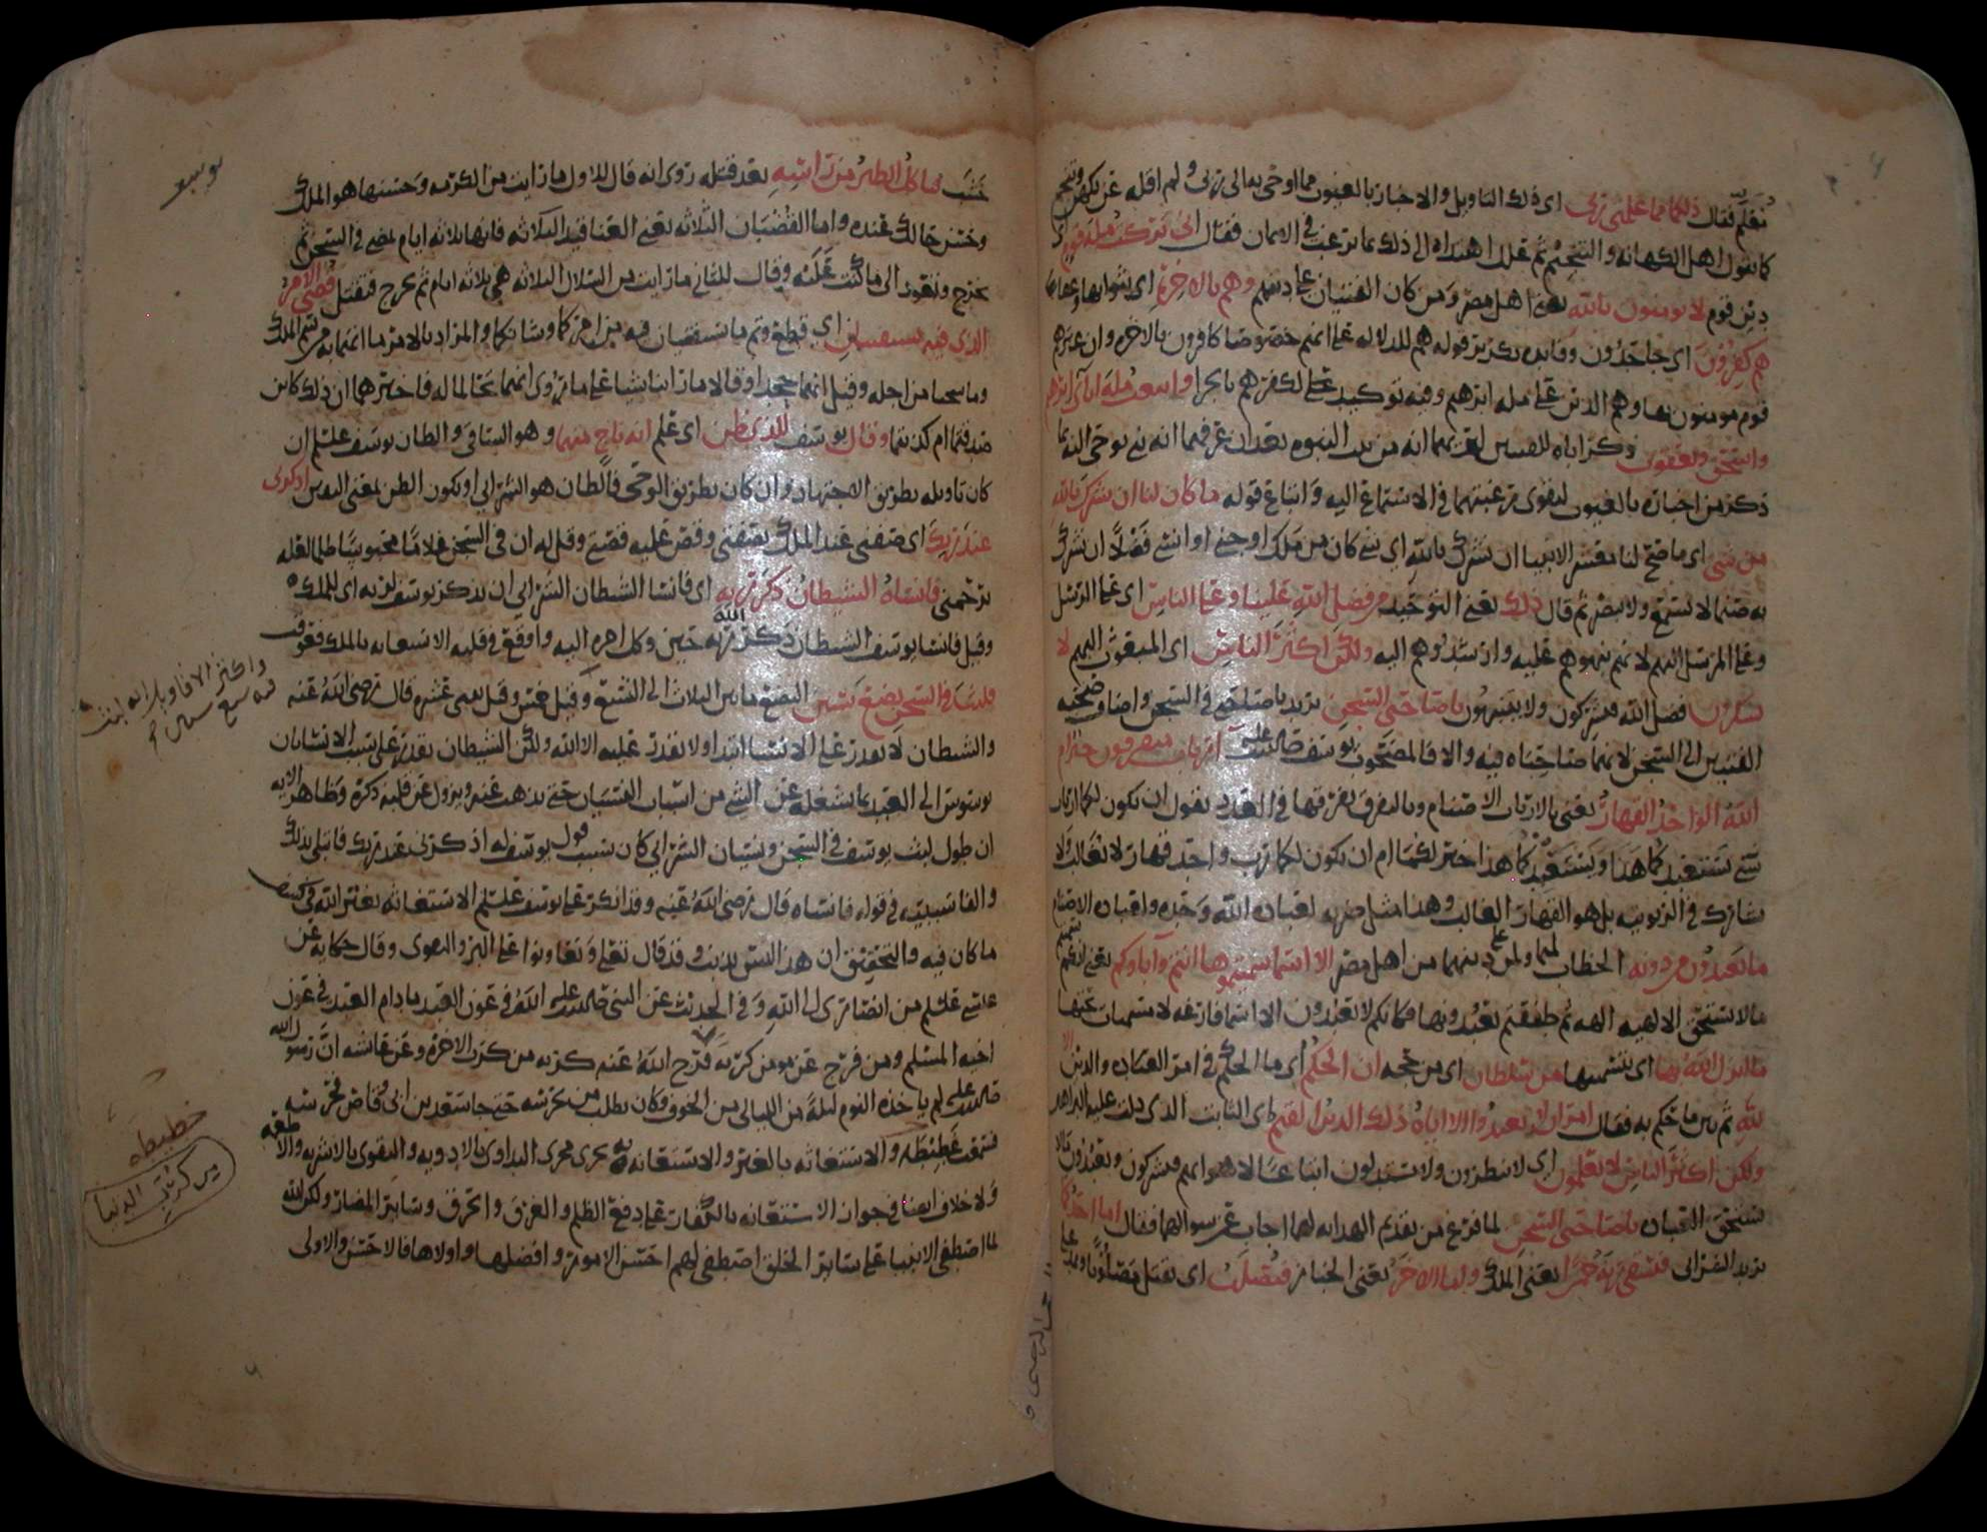 تعلم فقال ذلكما مما علمني ربي اي ذلك التاويل والاخبار بالغيوب مما اوحى تعالى الي ربي ولم اقله عن تكهن وتنجم
كما تقول اهل الكهانة والتنجيم ثم علل اهتداه الى ذلك بما يرغب في الايمان فقال اني تركت ملة قوم اي
دين قوم لا يومنون بالله يعني اهل مصر ومن كان الفتيان على دينهم وهم بالاخرة اي بثوابها وعقابها
هم كفرون اي جاحدون وفايدة تكرير قوله هم للدلالة على انهم خصوصا كافرون بالاخرة وان غيرهم
قوم مومنون بها وهم الذين على ملة ابرهيم وفيه توكيد على كفرهم بالجزا واتبعت ملة اباي ابرهيم
واسحق ويعقوب ذكر اباه للفتيين ليعلمهما انه من بيت النبوة بعد ان عرفهما انه نبي يوحى اليه بما
ذكر من اخباره بالغيوب ليقوي رغبتهما في الاستماع اليه واتباع قوله ما كان لنا ان نشرك بالله
من شي اي ما صح لنا معشر الانبيا ان نشرك بالله اي شي كان من ملك او جني او انسي فضلا ان نشرك
به صنما لا يسمع ولا يبصر ثم قال ذلك يعني التوحيد من فضل الله علينا وعلى الناس اي على الرسل
وعلى المرسل اليهم لانهم نبهوهم عليه وارشدوهم اليه ولكن اكثر الناس اي المبعوث اليهم لا
يشكرون فضل الله فيشركون ولا يتنبهون ياصاحبي السجن يريد ياصاحبي في السجن واضاف صحبة
الفتيين الى السجن لانهما صاحباه فيه والا فالمصحوب يوسف صلى الله عليه ءارباب متفرقون خير ام
الله الواحد القهار يعني بالارباب الاصنام وبالتفرق تفرقها في العدد يقول ان تكون لكما ارباب
شتى يستعبدكما هذا ويستعبدكما هذا خير لكما ام ان يكون لكما رب واحد قهار لا يغالب ولا
يشارك في الربوبية بل هو القهار الغالب وهذا مثل ضربه لعبادة الله وحده ولعبادة الاصنام
ما تعبدون من دونه الخطاب لهما ولمن على دينهما من اهل مصر الا اسما سميتموها انتم وآباوكم يعني انكم سميتم
مالا يستحق الالهية الهة ثم طفقتم تعبدونها فكانكم لا تعبدون الا اسما فارغة لا مسميات تحتها
ما انزل الله بها اي بتسميتها من سلطان اي من حجة ان الحكم اي ما الحكم في امر العبادة والدين الا
لله ثم بين ما حكم به فقال امر ان لا تعبدوا الا اياه ذلك الدين القيم اي الثابت الذي دلت عليه البراهين
ولكن اكثر الناس لا يعلمون اي لا ينظرون ولا يستدلون اتباعا لاهوايهم فيشركون ويعبدون مالا
يستحق العبادة ياصاحبي السجن لما فرغ من تقديم الهداية لهما اجاب عن سوالهما فقال اما احدكما
يريد الشرابي فيسقي ربه خمرا يعني الملك واما الاخر يعني الخباز فيصلب اي يقتل مصلوبا على
يوسف
خشب فتاكل الطير من راسه بعد قتله روى انه قال للاول ما رايت من الكرمة وحسنها هو الملك
وحسن حالك عنده واما القضبان الثلاثة يعني العناقيد الثلاثة فانها ثلاثة ايام تمضي في السجن ثم
تخرج وتعود الى ما كنت عليه وقال للثاني ما رايت من السلال الثلاثة هي ثلاثة ايام ثم تخرج فتقتل قضي الامر
الذي فيه تستفتيان اي قطع وتم ما تستفتيان فيه من امركما وشانكما والمراد بالامر ما اتهما به من سم الملك
وما سجنا من اجله وقيل انهما جحدا وقالا ما راينا شيا على ما روى انهما تحالما له فاخبرهما ان ذلك كاين
صدقتما ام كذبتما وقال يوسف للذي ظن اي علم انه ناج منهما وهو الساقي والظان يوسف عليلم ان
كان تاويله بطريق الاجتهاد وان كان بطريق الوحي فالظان هو الشرابي او يكون الظن بمعنى اليقين اذكرني
عند ربك اي صفني عند الملك بصفتي وقص عليه قصتي وقل له ان في السجن غلاما محبوسا ظلما لعله
يرحمني فانساه الشيطان ذكر ربه اي فانسا الشيطان الشرابي ان يذكر يوسف لربه اي للملك
وقيل فانسا يوسف الشيطان ذكر الله ربه حين وكل امره اليه واوقع في قلبه الاستعانة بالملك فعوقب
فلبث في السجن بضع سنين البضع ما بين الثلاث الى التسع وقيل خمس وقيل اثنى عشرة قال رضي الله عنه
واكثر الاقاويل انه لبث
فيه سبع سنين
والشيطان لا يقدر على الانسا ابتدا ولا يقدر عليه الا الله ولكن الشيطان يقدر على سبب الانسا بان
يوسوس الى العبد بما يشغله عن الشي من اسباب النسيان حتى يذهب عنه ويزول عن قلبه ذكره وظاهر الاية
ان طول لبث يوسف في السجن ونسيان الشرابي كان بسبب قول يوسف له اذكرني عند ربك فابتلي بذلك
والفا سببية في قوله فانساه قال رضي الله عنه وقد انكر على يوسف عليلم الاستغاثة بغير الله في كشف
ما كان فيه والتحقيق ان هذا ليس بذنب وقد قال تعلى وتعاونوا على البر والتقوى وقال حكاية عن
عيسى عليلم من انصاري الى الله وفي الحديث عن النبي صلى الله عليه الله في عون العبد ما دام العبد في عون
اخيه المسلم ومن فرج عن مومن كربة فرج الله عنه كربة من كرب الاخرة وعن عايشه ان رسول الله
صلى الله عليه لم ياخذه النوم ليلة من الليالي من الخوف وكان يطلب من يحرسه حتى جا سعد بن ابي وقاص فحرسه
من كربات الدنيا
فسمعت غطيطه والاستغاثه بالغير والاستعانة به يجري مجرى التداوي بالادويه والتقوي بالاشربه والاطعمه
ولا خلاف ايضا في جواز الاستعانة بالكفار على دفع الظلم والغرق والحرق وساير المضار ولكن الله
لما اصطفى الانبيا على ساير الخلق اصطفى لهم احسن الامور وافضلها واولاها فالاحسن والاولى